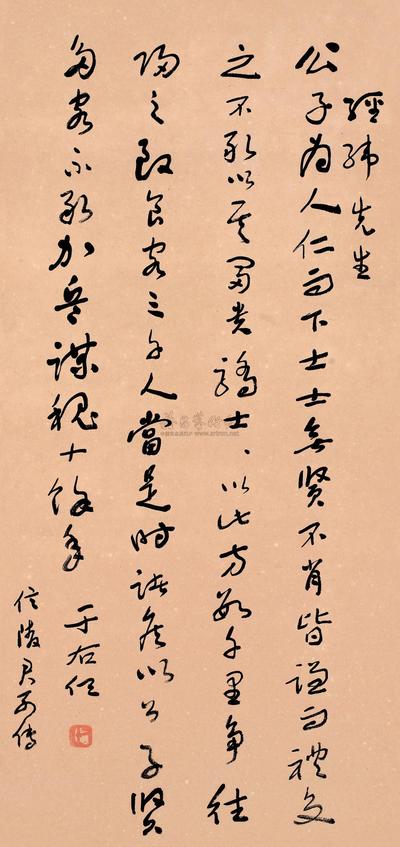 經緯先生
公子為人仁而下士士無賢不肖皆謙而禮交
之不敢以其富貴驕士、以此方數千里爭往
歸之致食客三千人當是時諸侯以公子賢
多客不敢加兵謀魏十餘年 于右任
信陵君列傳